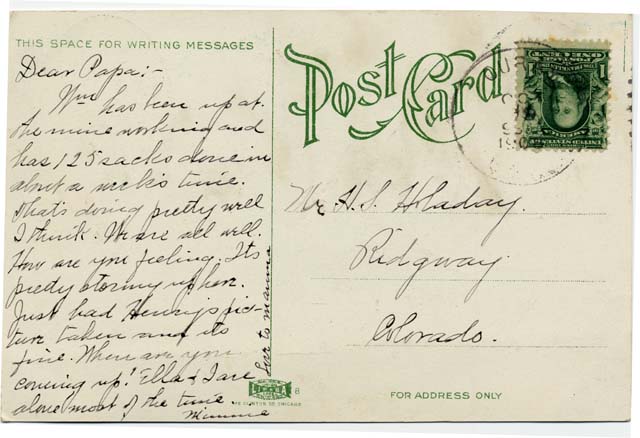 THIS SPACE FOR WRITING MESSAGES
Dear Papa:-
Wm has been up at
the mine working and
has 125 sacks done in
about a week's time.
That's doing pretty well
I think. We are all well.
How are you feeling. Its
pretty stormy up here.
Just had Henry's pic-
ture taken and its
fine. When are you
coming up? Ella & I are
alone most of the time.
Minnie
Love to mamma
Post Card
Mr. H. S. Holaday.
Ridgway.
Colorado.
8
FOR ADDRESS ONLY